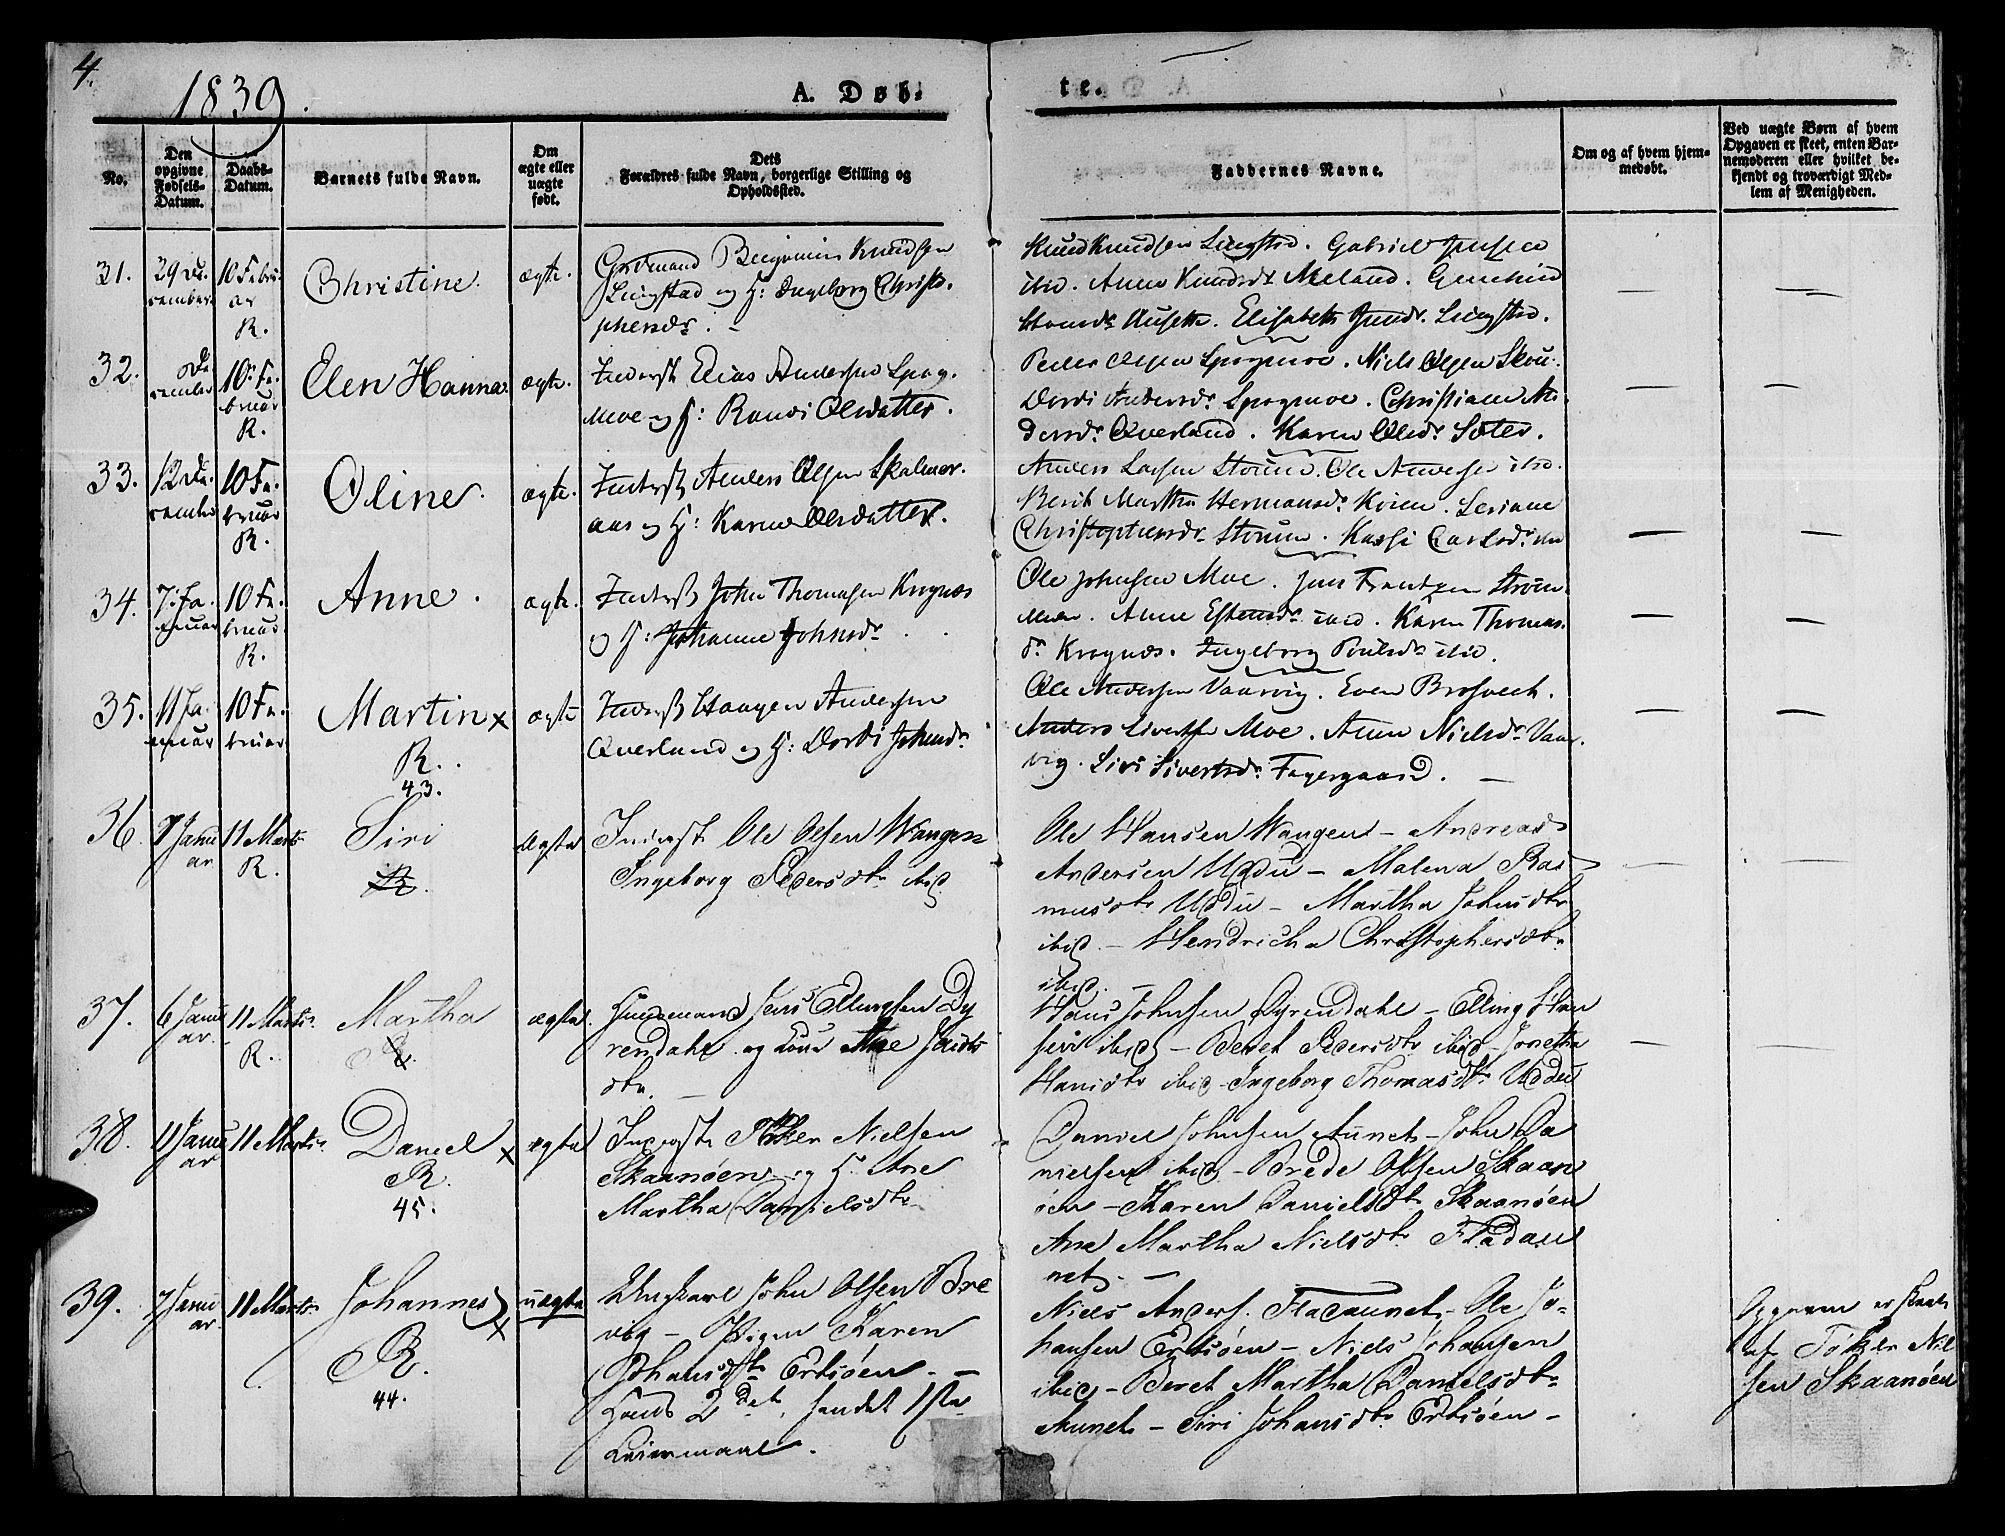 4.
1839.
A. Døb-
te.
No.
Den opgivne Fødsels-Datum.
Daabs-Datum.
Barnets fulde Navn.
Om ægte eller uægte født.
Dets Forældres fulde Navn, borgerlige Stilling og Opholdssted.
Faddernes Navne.
Om og af hvem hjem-
medøbt.
Ved uægte Børn af hvem
Opgaven er skeet, enten Bar-
nemoderen eller hvilket be-
kjendt og troværdigt Med-
lem af Menigheden.
31.
29 De-
cember
10 Febru-
ar
R.
Christine.
ægte.
Gaardmand Benjamin Knudsen
og H: Ingeborg Christo-
phersdr.
Knud Knudsen Gabriel Jensen
ibid. Anne Knudsdr Meland.
Elisabeth
32.
De-
cember
10. Fe-
bruar
R.
Elen Hanna
ægte.
Inderst Elias Andersen Spog-
moe og H: Randi Olsdatter.
Peder Olsen Spogmoe. Niels Olsen
Dordi Andersdr Spogmoe. Christiane An-
dersdr Overland. Karen Olsdr Sæter.
33.
12 De-
cember
10 Fe-
bruar
R.
Oline.
ægte.
Inderst Anders Olsen Skalmer-
aas og H: Karen Olsdatter.
Anders Larsen Ole Andersen ibid.
Berit Martha Hermansdr
Christophersdr Carlsdr
34.
7. Ja-
nuar
10 Fe-
bruar
R.
Anne.
ægte.
Inderst John Thomasen Krognæs
og H: Johanne Johnsdr
Ole Johnsen Moe. Jens Frantzen Strøm-
men. Anne Estensdr ibid. Karen Thomas-
dr Krognæs. Ingeborg Poulsdr ibid.
35.
11 Ja-
nuar
10 Fe-
bruar
Martin x
R.
43.
ægte
Inderst Haagen Andersen
Overland og H: Dordi Johnsdr
Ole Andersen Vaarvig. Even
Anders Sivertsen Moe. Anne Nielsdr Vaar-
vig. Siri Sivertsdr Fagergaard.
36.
7 Janu
ar
11 Marts
R.
Siri
R.
ægte
Inderst Ole Olsen Wangen
Ingeborg Pedersdtr ibid
Ole Hansen Wangen - Andreas
Andersen Uddu - Malena Ras-
musdtr Uddu - Martha Johnsdtr
ibid. - Hendricha Christophersdtr
ibid.
37.
6 Janu
ar.
11 Marts
R.
Martha
R.
ægte.
Huusmand Jens Ellingsen Dy
rendahl og Kone Ane
dtr.
Hans Johnsen Dyrendahl - Elling Han
sen ibid - Beret Pedersdtr ibid - Jonetha
Hansdtr ibid - Ingeborg Thomasdtr Uddu
38.
11 Janu
ar
11 Marts
Daniel x
R.
45.
ægte
Inderst Tøker Nielsen
Skaanøen og H. Ane
Martha Danielsdtr
Daniel Johnsen Aunet - John Da
nielsen ibid - Brede Olsen Skaan
øen - Karen Danielsdtr Skaanøen
Ane Martha Nielsdtr Fladau
net. -
39.
7 Janu
ar.
11 Marts
Johannes x
R.
44.
uægte
Ungkarl John Olsen Bre
vig - Pigen Karen
Johansdtr Ertsøen. -
Hans 2det, hendes 1ste
Leiermaal.
Niels Anders. Fladaunet - Ole Jo-
hansen Ertsøen - Niels Johansen
ibid - Beret Martha Danielsdtr
Aunet - Siri Johansdtr Ertsøen -
Opgaven er skeet
af Tøker Niel
sen Skaanøen